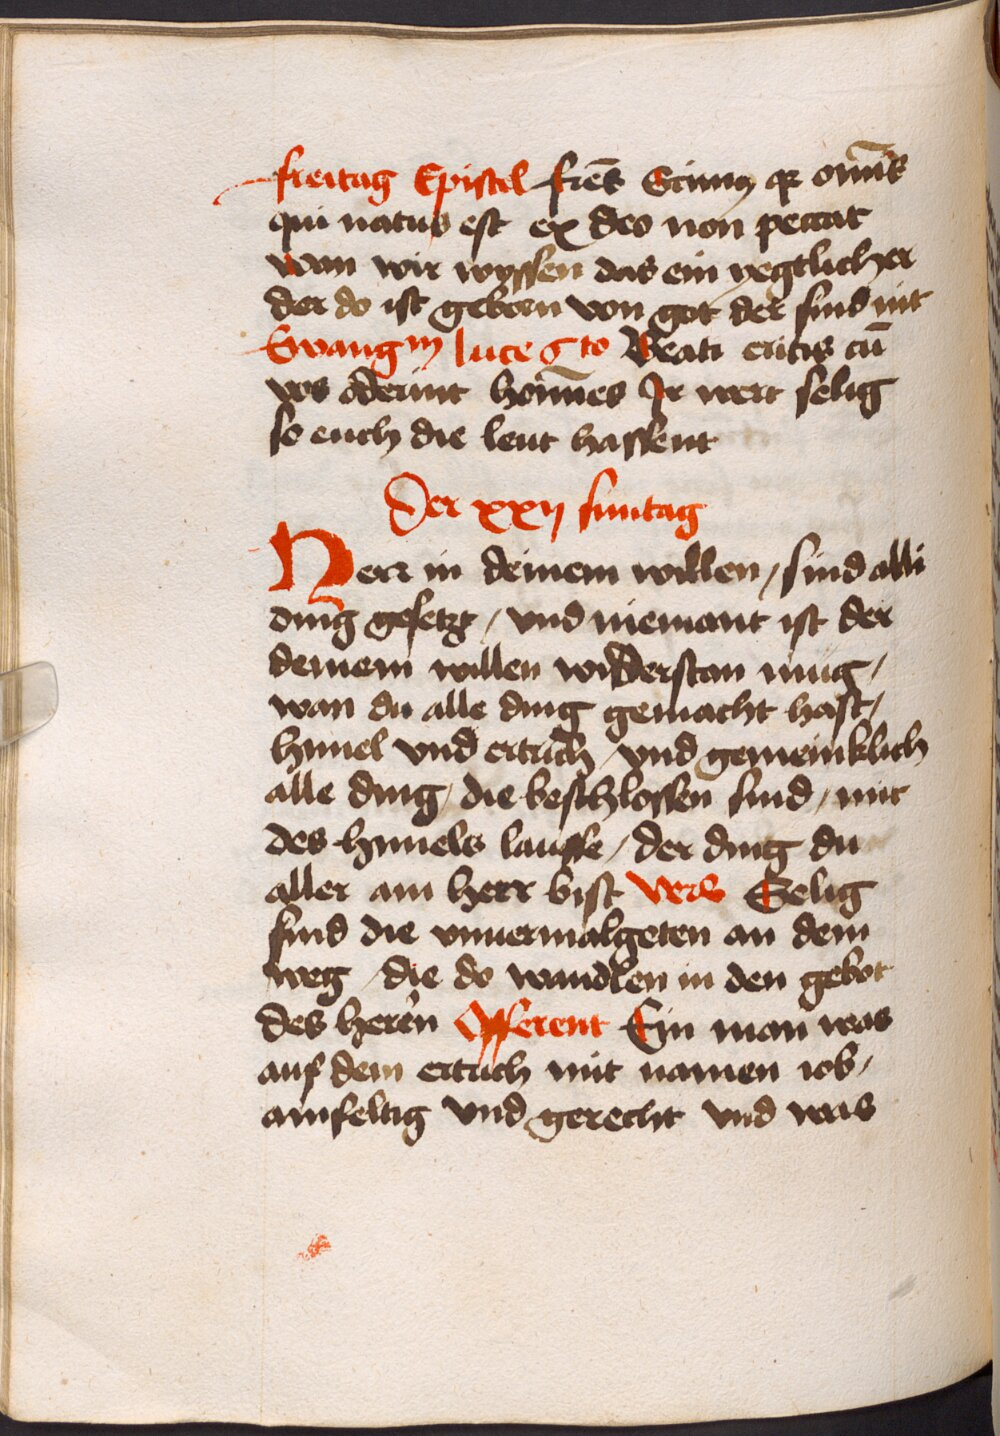 freitag Epistel frēs Scimꝯ qꝛ om̄is
qui natus est ex deo non peccat
wan wir wyssen das ein yegtlicher
der do ist geborn von got der sind nit
Evangm luce 6to Beati eritis cū
vos oderint hoīnes Ir wert selig
so euch die leut hassent
Der xxij suntag
Herr in deinem willen / sind alli
ding gesetzt / vnd niemant ist der
deinem willen widerstan mug /
wan du alle ding gemacht hast /
himel vnd ertrich / vnd gemeinklich
alle ding / die beschlossen sind / mit
des himels lauffe / der ding du
aller ain herr bist vers Selig
sind die vnuermalgeten an dem
weg / die do wandlen in den gebot
des herrn Offerent Ein man was
auf dem ertrich mit namen iob /
ainfeltig vnd gerecht vnd was